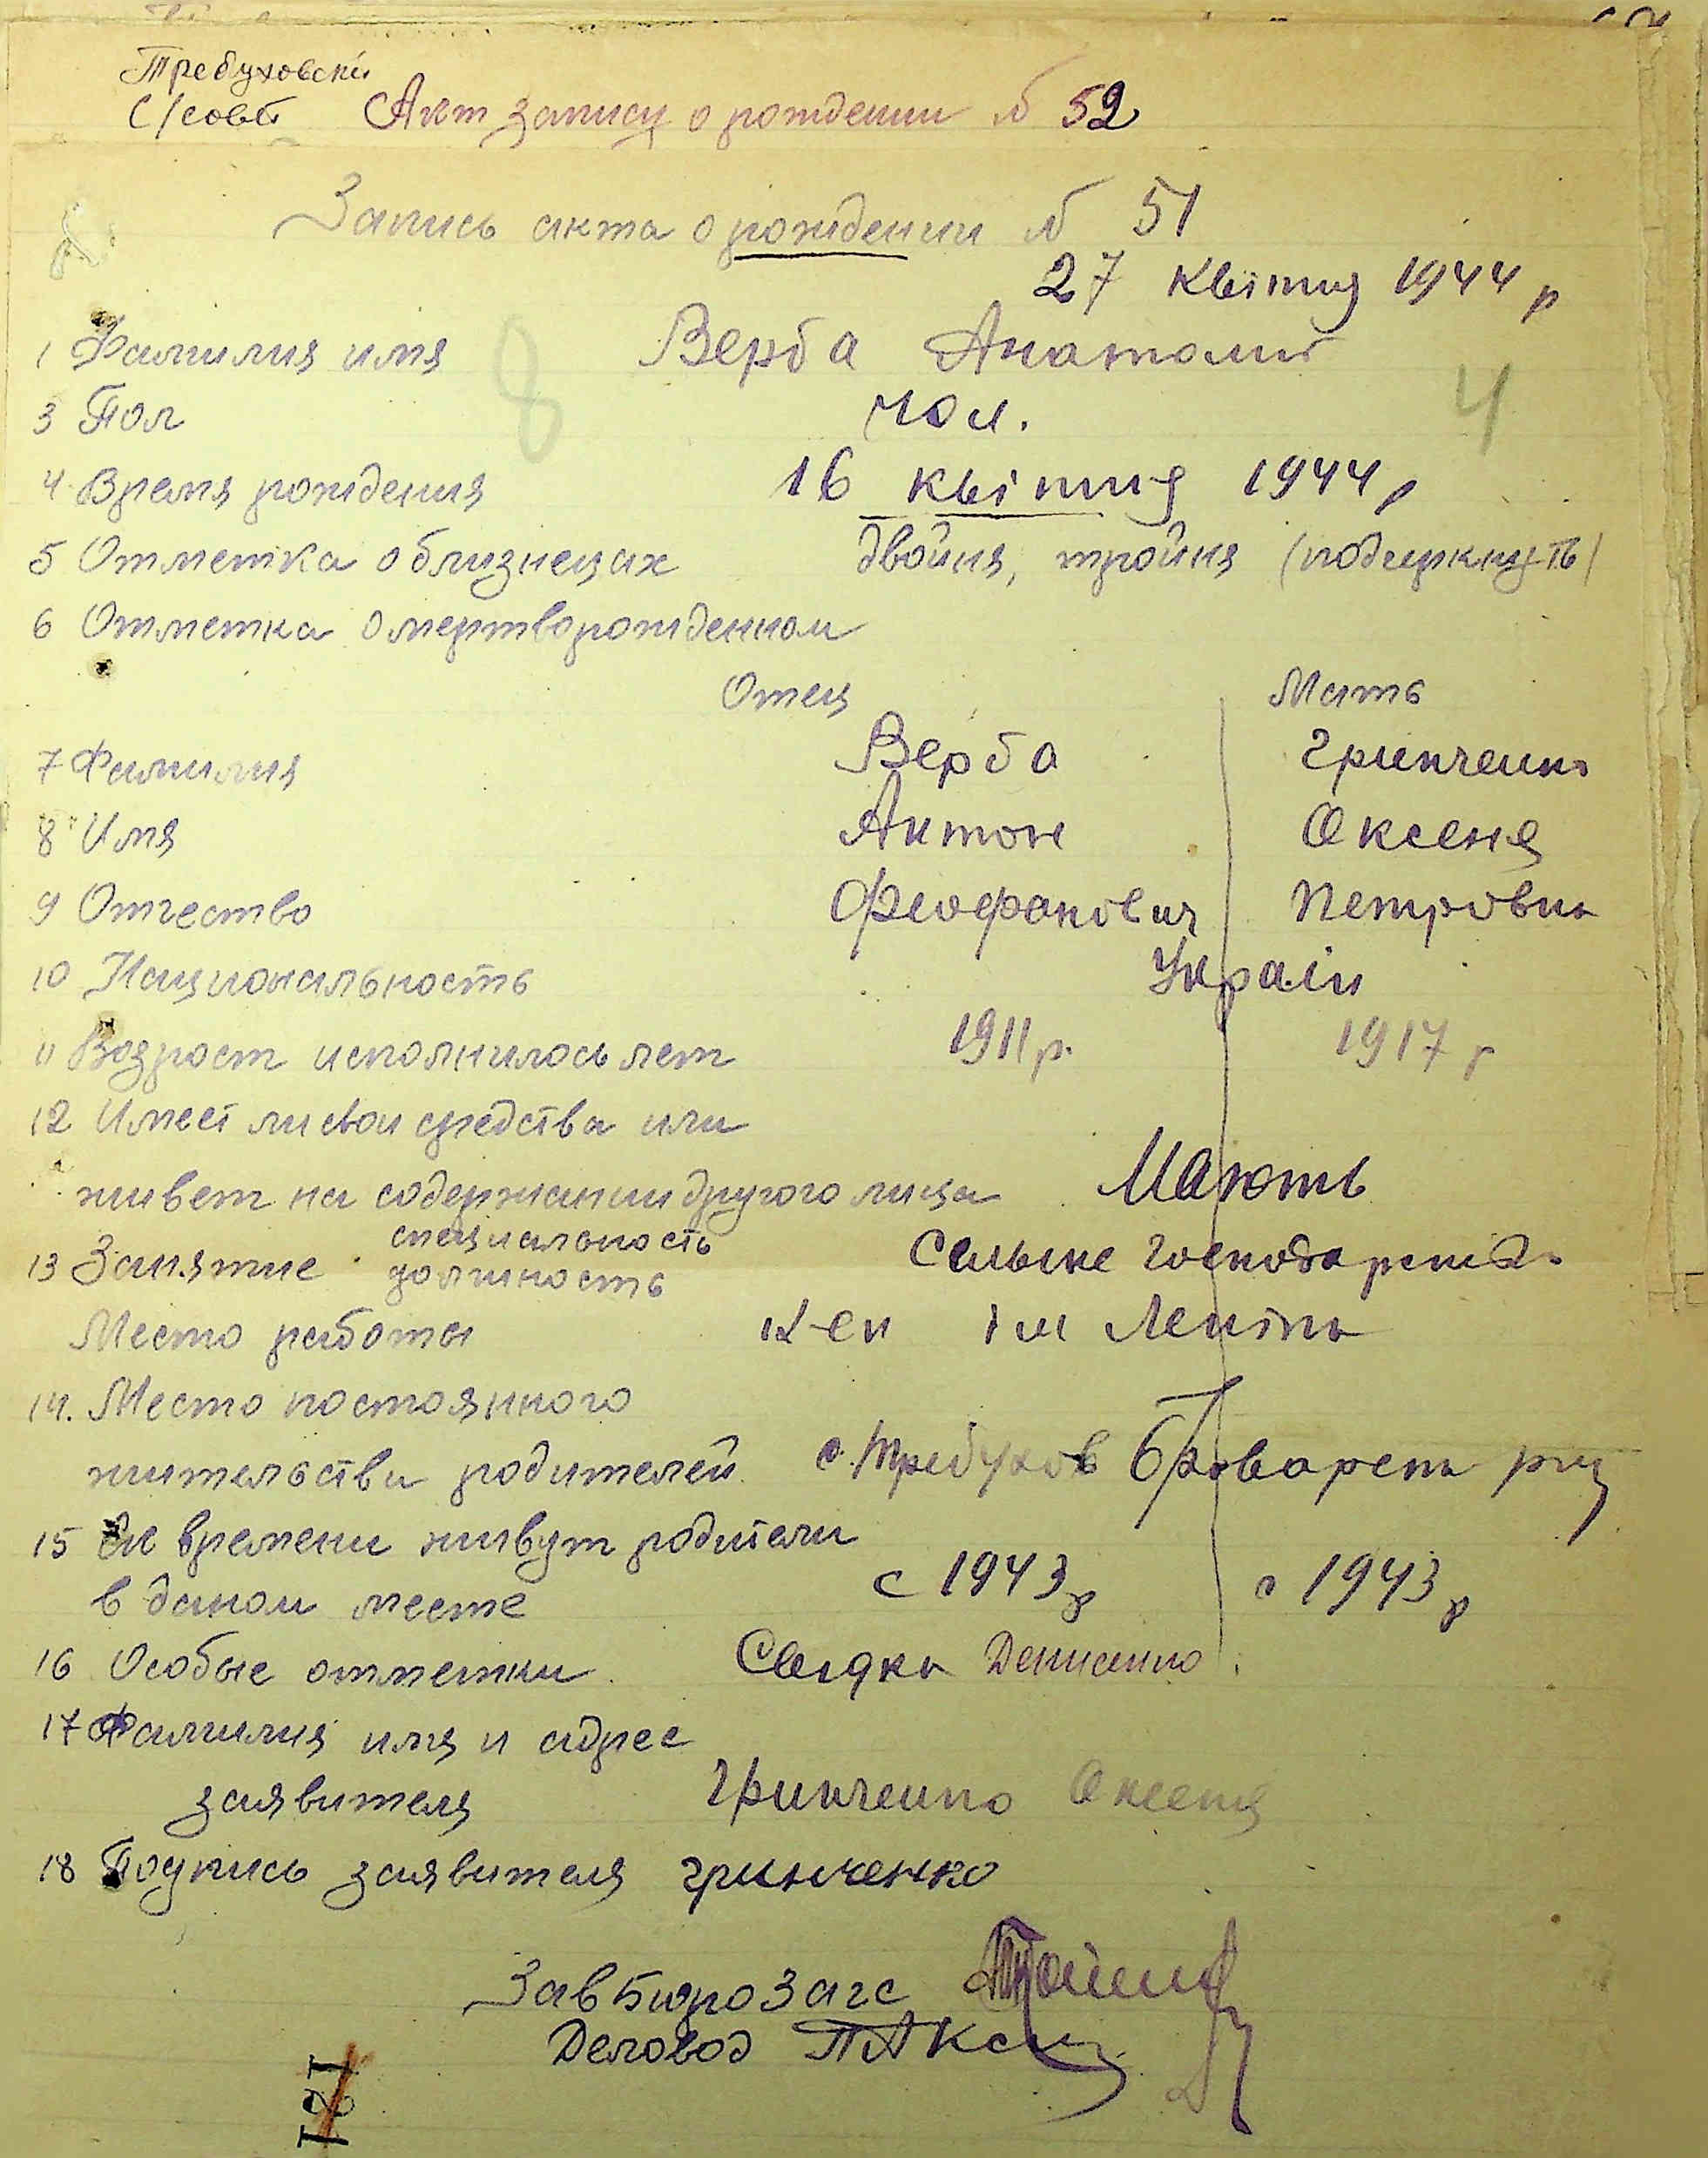 Требуховски
С/совет Акт записи о рождении № 52
Запись акта о рождении № 51
27 Квітня 1944 р
1 Фамилия имя Верба Анатолий
3 Пол чол.
4 Время рождения 16 квітня 1944 р
5 Отметка о близнецах двойня, тройня (подчеркнуть)
6 Отметка о мертворожденном
Отец Мать
7 Фамилия Верба Гринченко
8 Имя Антон Оксеня
9 Отчество Феофанович Петровна
10 Национальность Украін
11 Возраст исполнилось лет 1911 р. 1917 р
12 Имеет ли свои средства или
живет на содержании другого лица Мають
13 Занятие специальность
должность Сельске господарство
Место работы к-сп ім Леніна
14. Место постоянного
жительства родителей с. Требухов Броварск р-н
15 С времени живут родители
в даном месте с 1943 р с 1943 р
16 Особые отметки Свидки Денисенко
17 Фамилия имя и адрес
заявителя Гринченко Оксеня
18 Подпись заявителя гринченко
Зав бюро Загс
Деловод
121
8
4